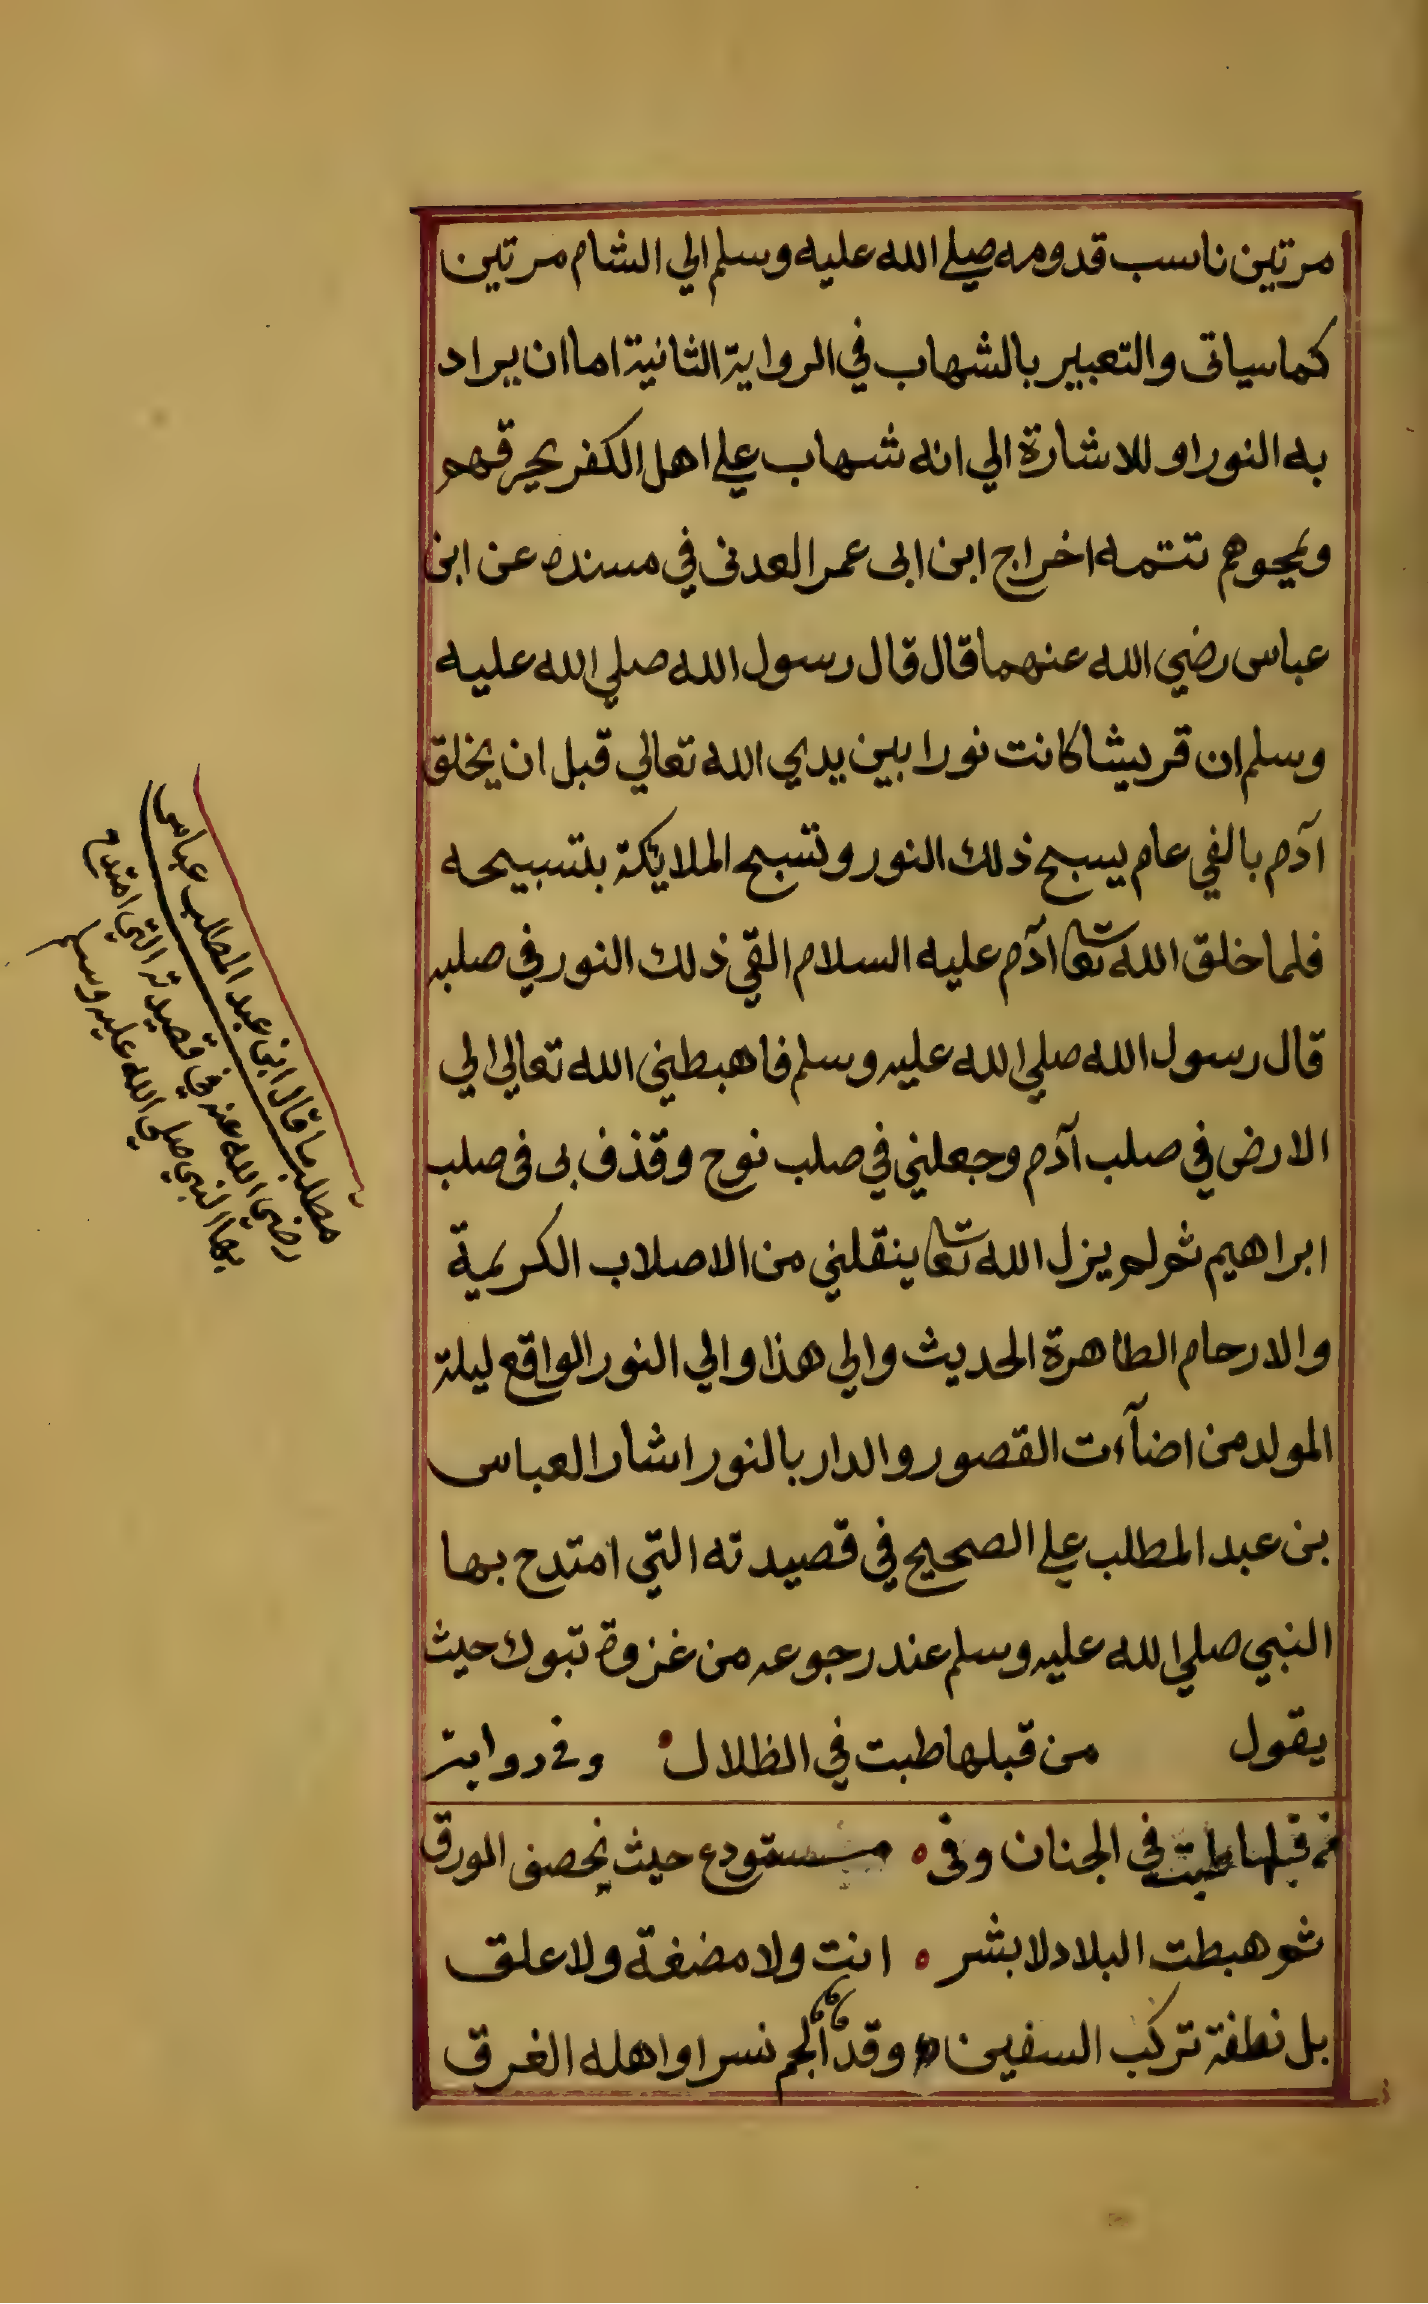 مرتين ناسب قدومه صلي الله عليه وسلم الي الشام مرتين
كما سياتى والتعبير بالشهاب في الرواية الثانية اما ان يراد
به النور او للاشارة الي انه شهاب علي اهل الكفر يحرقهم
ويمحوهم تتمه اخراج ابن ابى عمر العدنى في مسنده عن ابن
عباس رضي الله عنهما قال قال رسول الله صلي الله عليه
وسلم ان قريشا كانت نورا بين يدي الله تعالي قبل ان يخلق
آدم بالفي عام يسبح ذلك النور وتسبح الملايكة بتسبيحه
فلما خلق الله تعا آدم عليه السلام القي ذلك النور في صلبه
قال رسول الله صلي الله عليه وسلم فاهبطني الله تعالي الي
الارض في صلب آدم وجعلني في صلب نوح وقذف بى فى صلب
ابراهيم ثم لم يزل الله تعا ينقلني من الاصلاب الكريمة
والارحام الطاهرة الحديث والي هذا والي النور الواقع ليلة
المولد من اضآءت القصور والدار بالنور اشار العباس
بن عبد المطلب علي الصحيح في قصيدته التي امتدح بها
النبي صلي الله عليه وسلم عند رجوعه من غزوة تبوك حيث
يقول من قبلها طبت في الظلال وفى رواية
من قبلها طبت فى الجنان وفى مستودع حيث يخصف الورق
ثم هبطت البلاد لا بشر انت ولا مضغة ولا علق
بل نطفة تركب السفين وقد الجم نسرا واهله الغرق
مطلب ما قال ابن عبد المطلب عباس
رضي الله عنه في قصيدته التي امتدح
بها النبي صلي الله عليه وسلم